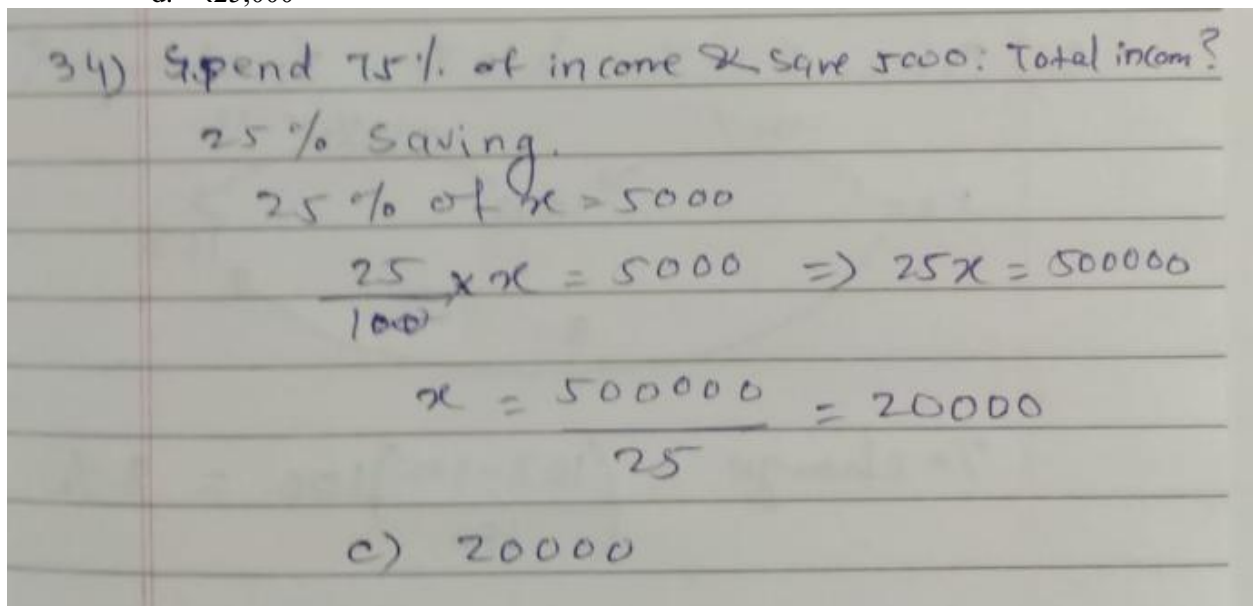 d. ₹25,000
34) Spend 75% of income & save 5000: Total incom?
25% saving.
25% of x = 5000
25/100 × x = 5000 => 25x = 500000
x = 500000/25 = 20000
c) 20000